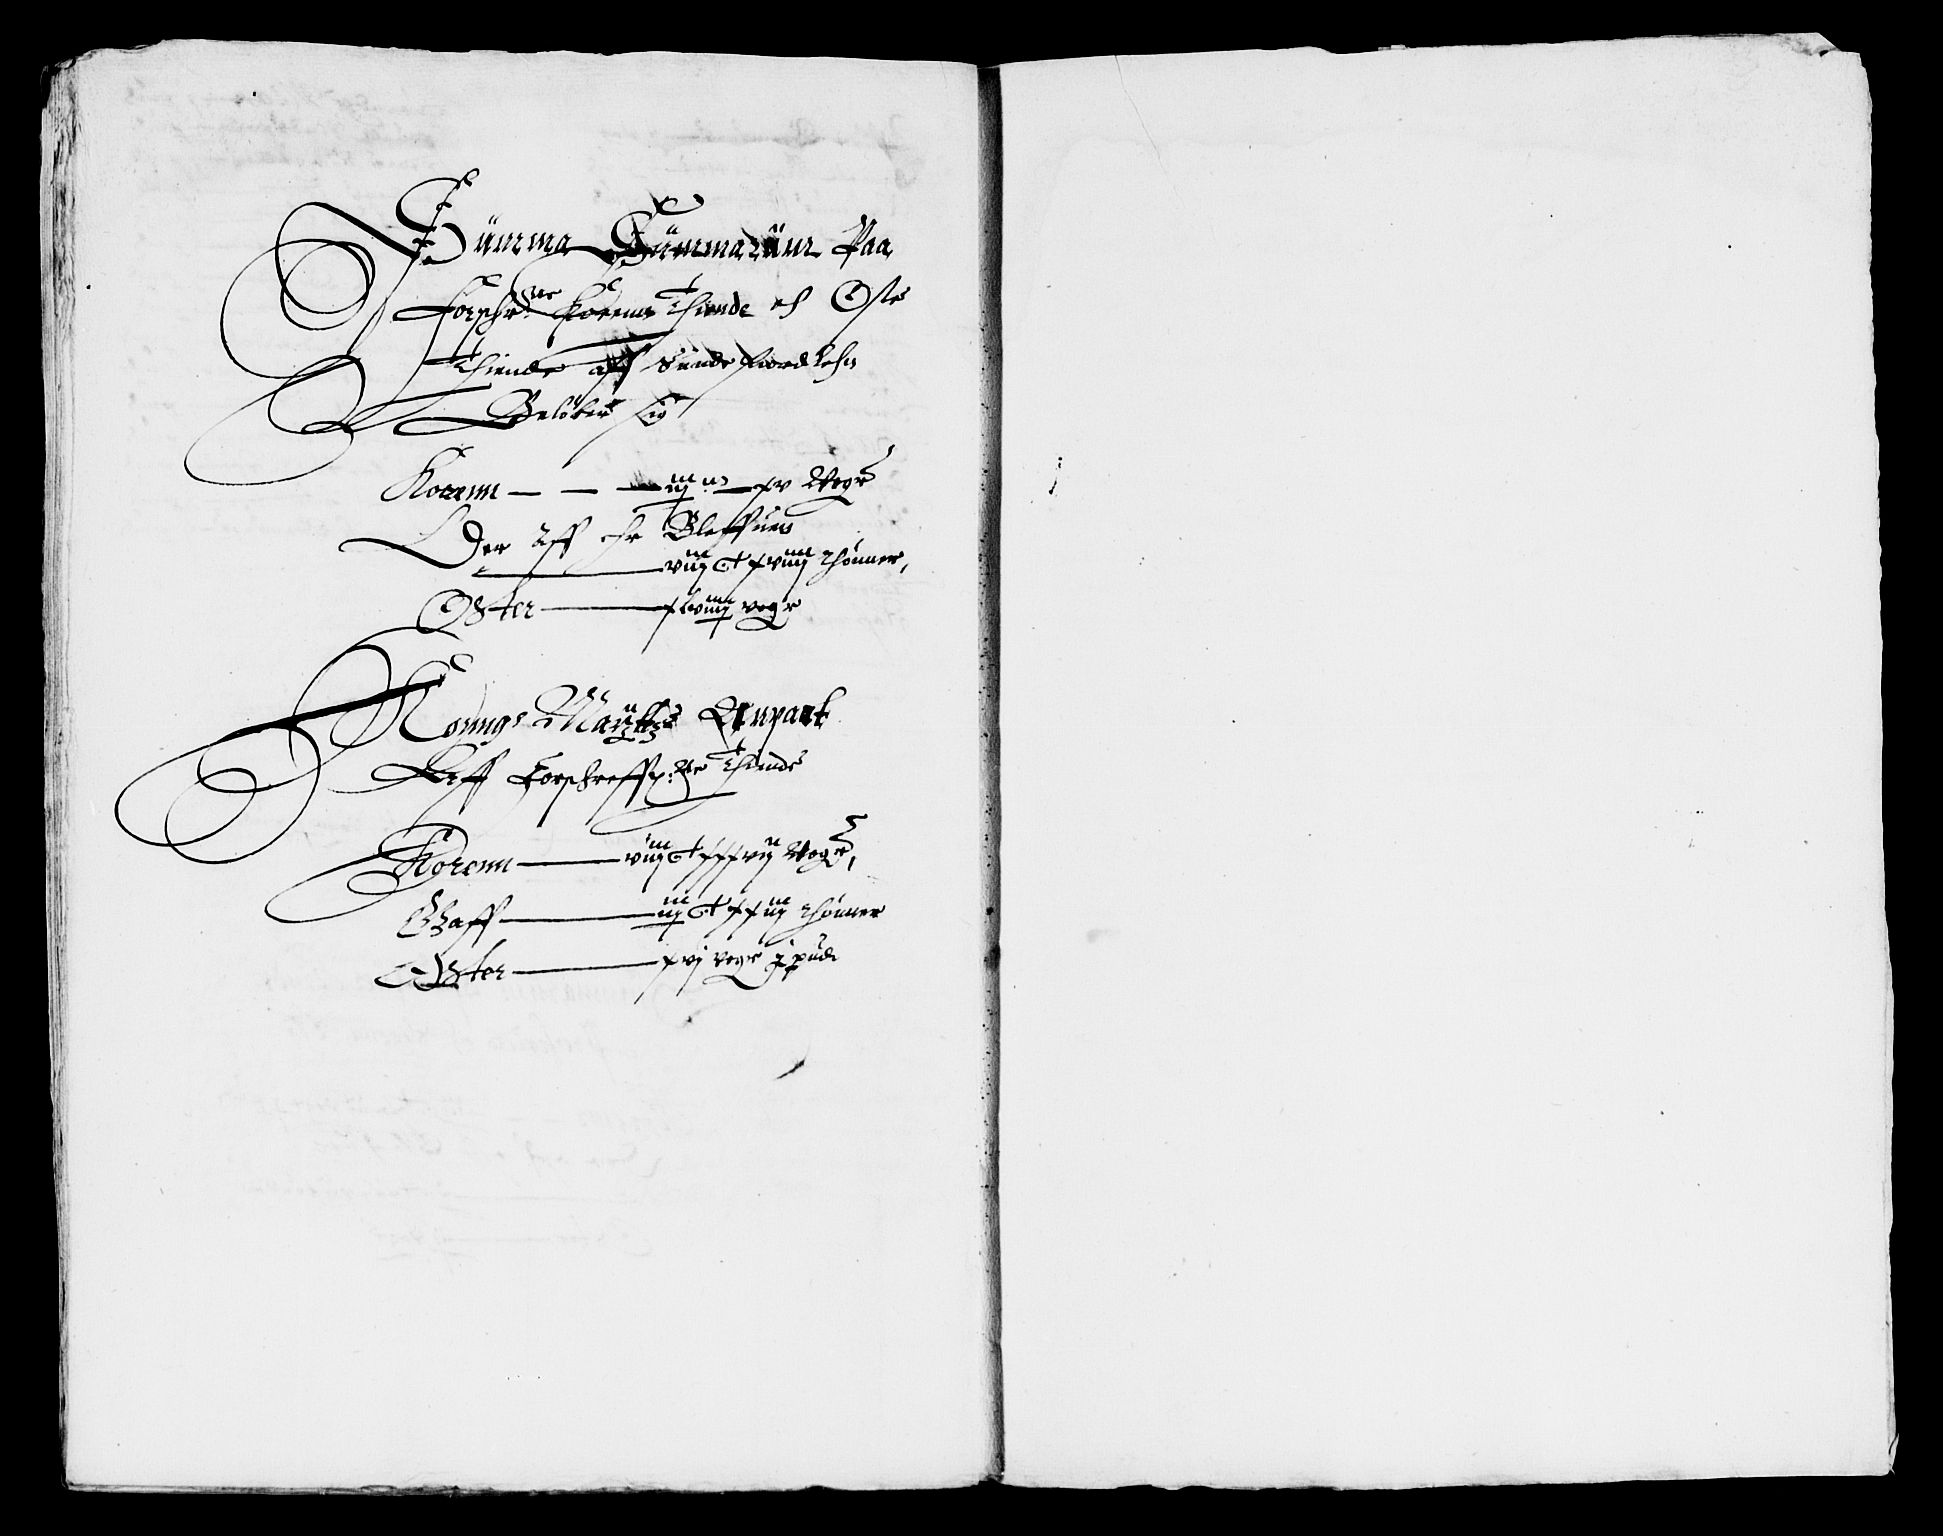 Summa Summarum Paa
Forschr:ne Korenn Thiende och Oste
Thiende aff Sundefiord Lehn
Beløber sig
Korenn — — — xv Woge
Der aff ehr Bleffuen
— viij C xviij thønner,
Oster — xlviij woge
Konnings Maÿttz Anpart
Aff Forschreffn:ne Thiende
Korenn — viij C xxxvij Woge,
Haff — iij C xxiij thønner
Oster — xvj woge j pudt